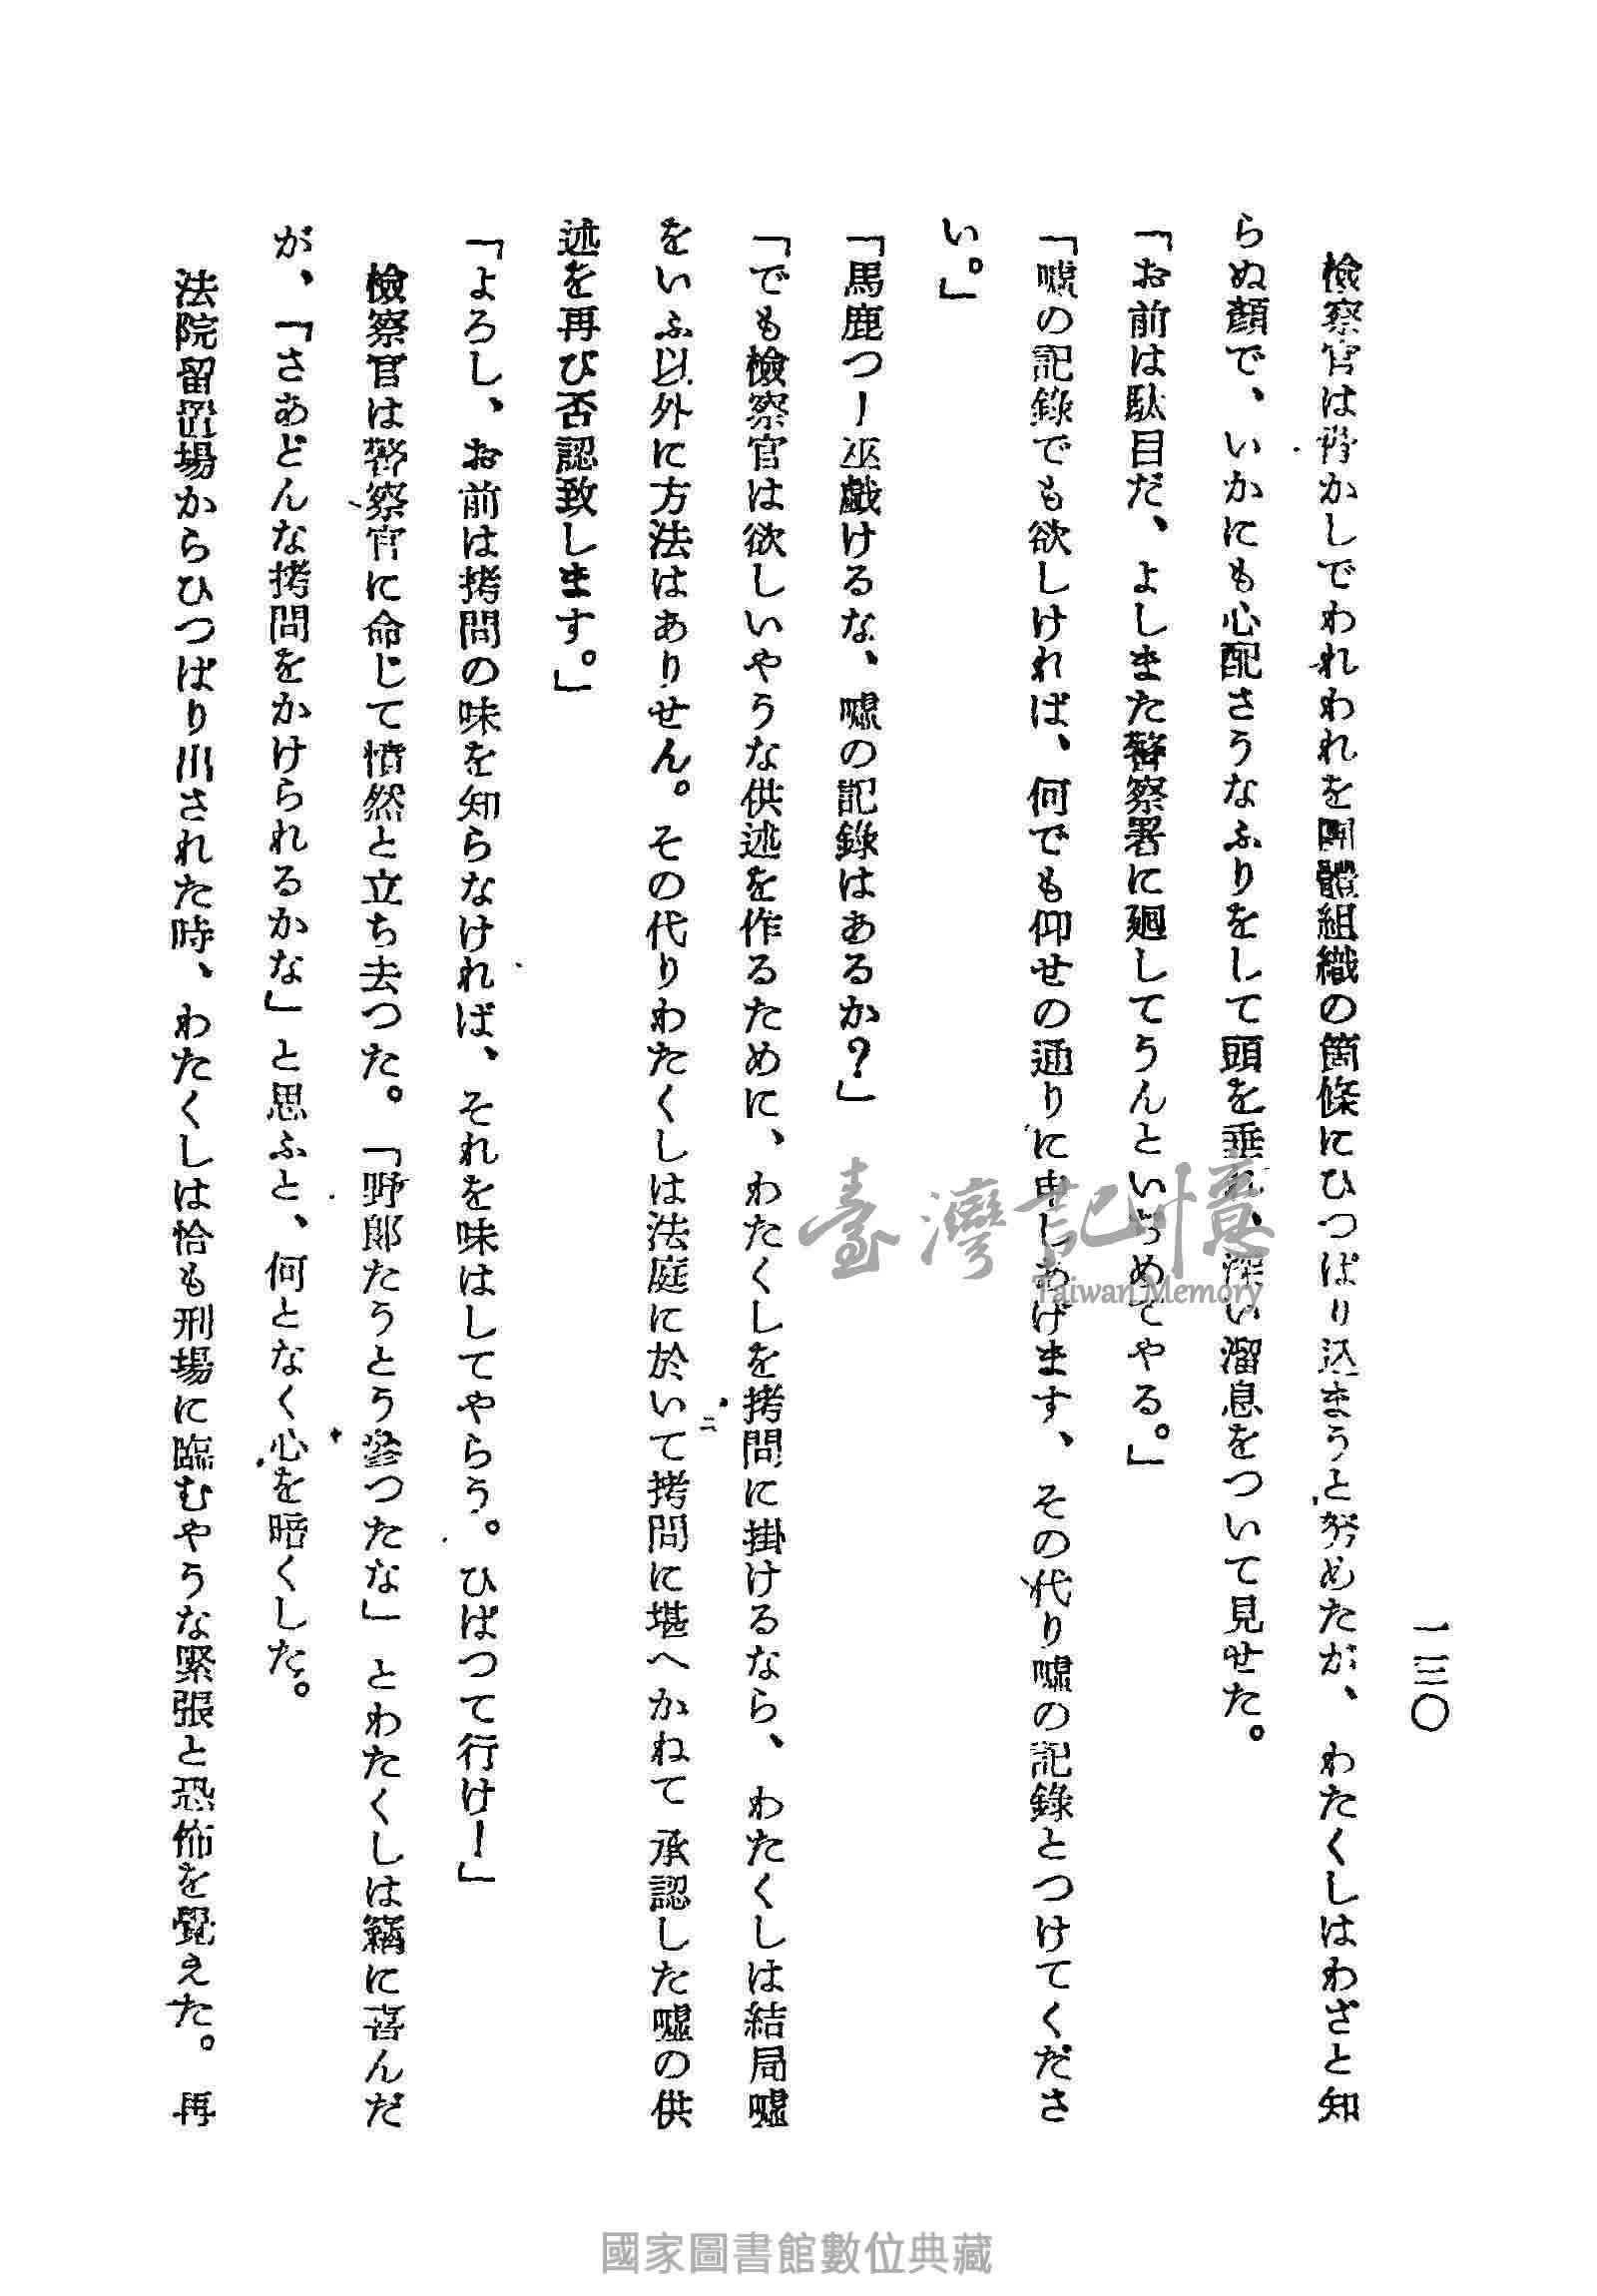 一三〇
檢察官は脅かしでわれわれを團體組織の箇條にひつぱり込まうと努めたが、わたくしはわざと知
らぬ顏で、いかにも心配さうなふりをして頭を垂れ、深い溜息をついて見せた。
「お前は駄目だ、よしまた警察署に廻してうんといぢめてやる。」
「噓の記錄でも欲しければ、何でも仰せの通りに申しあげます、その代り噓の記錄とつけてくださ
い。」
「馬鹿つー巫戲けるな、噓の記錄はあるか？」
「でも檢察官は欲しいやうな供述を作るために、わたくしを拷問に掛けるなら、わたくしは結局噓
をいふ以外に方法はありせん。その代りわたくしは法庭に於いて拷問に堪へかねて承認した噓の供
述を再び否認致します。」
「よろし、お前は拷問の味を知らなければ、それを味はしてやらう。ひぱつて行けー」
檢察官は警察官に命じて憤然と立ち去つた。「野郎たうとう參つたな」とわたくしは竊に喜んだ
が、「さあどんな拷問をかけられるかな」と思ふと、何となく心を暗くした。
法院留置場からひつぱり出された時、わたくしは恰も刑場に臨むやうな緊張と恐怖を覺えた。再
臺灣記憶
Taiwan Memory
國家圖書館數位典藏